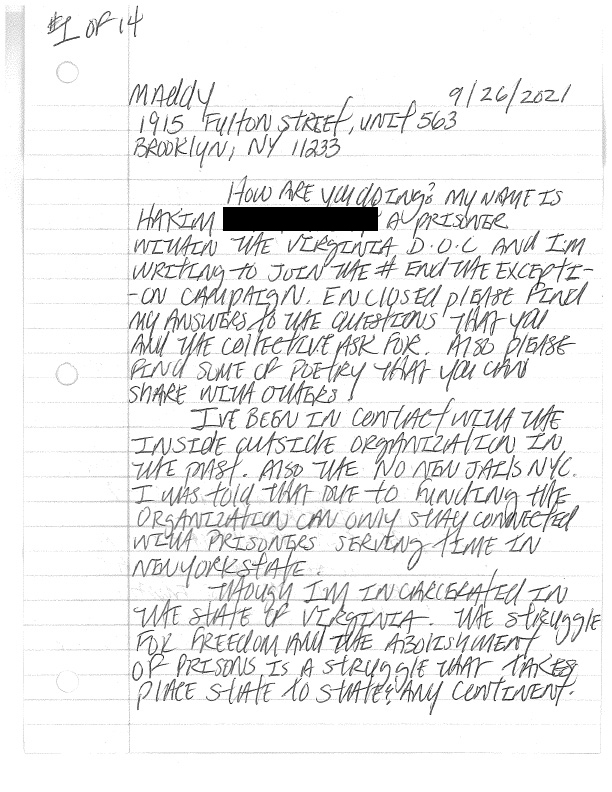 #1 OF 14
MAddy 9/26/2021
1915 Fulton STREET, UNIT 563
BROOKLYN, NY 11233
HOW ARE you doing? MY NAME IS
HAKIM A PRISONER
WITHIN THE VIRGINIA D.O.C AND I'M
WRITING TO JOIN THE # END THE EXCEPTI-
-ON CAMPAIGN. ENCLOSED, PLEASE FIND
MY ANSWERS TO THE QUESTIONS THAT YOU
AND THE COLLECTIVE ASK FOR. ALSO PLEASE
FIND SOME OF POETRY THAT YOU CAN
SHARE WITH OTHERS!
I'VE BEEN IN CONTACT WITH THE
INSIDE OUTSIDE ORGANIZATION IN
THE PAST. ALSO THE NO NEW JAILS NYC.
I WAS TOLD THAT DUE TO FUNDING THE
ORGANIZATION CAN ONLY STAY CONNECTED
WITH PRISONERS SERVING TIME IN
NEW YORK STATE.
THOUGH I'M INCARCERATED IN
THE STATE OF VIRGINIA. THE STRUGGLE
FOR FREEDOM AND THE ABOLISHMENT
OF PRISONS IS A STRUGGLE THAT TAKES
PLACE STATE TO STATE & ANY CONTINENT.